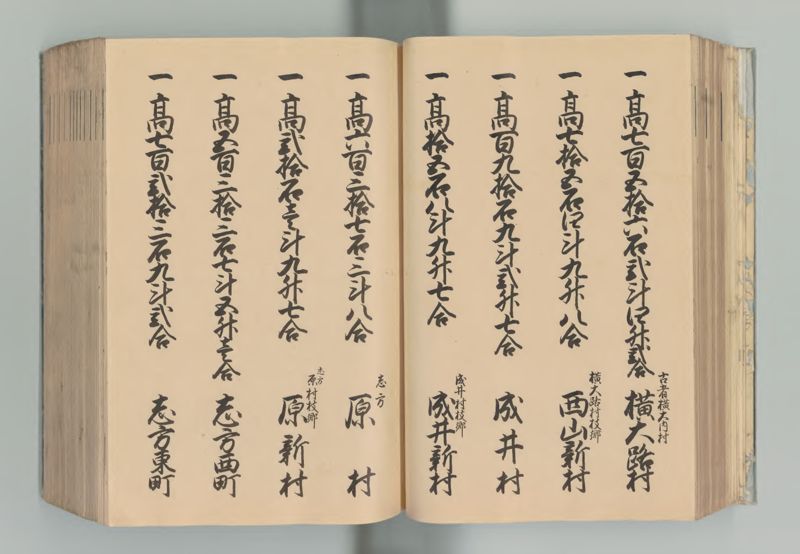 一 高七百五拾六石弐斗四升弐合
古者横大内村
横大路村
一 高七拾五石四斗九升八合
横大路村枝郷
西山新村
一 高百九拾石九斗弐升七合
成井村
一 高拾五石八斗九升七合
成井村枝郷
成井新村
一 高六百三拾七石三斗八合
志方
原村
一 高弐拾石壱斗九升七合
志方
原村枝郷
原新村
一 高五百三拾三石七斗五升壱合
志方西町
一 高七百弐拾三石九斗弐合
志方東町